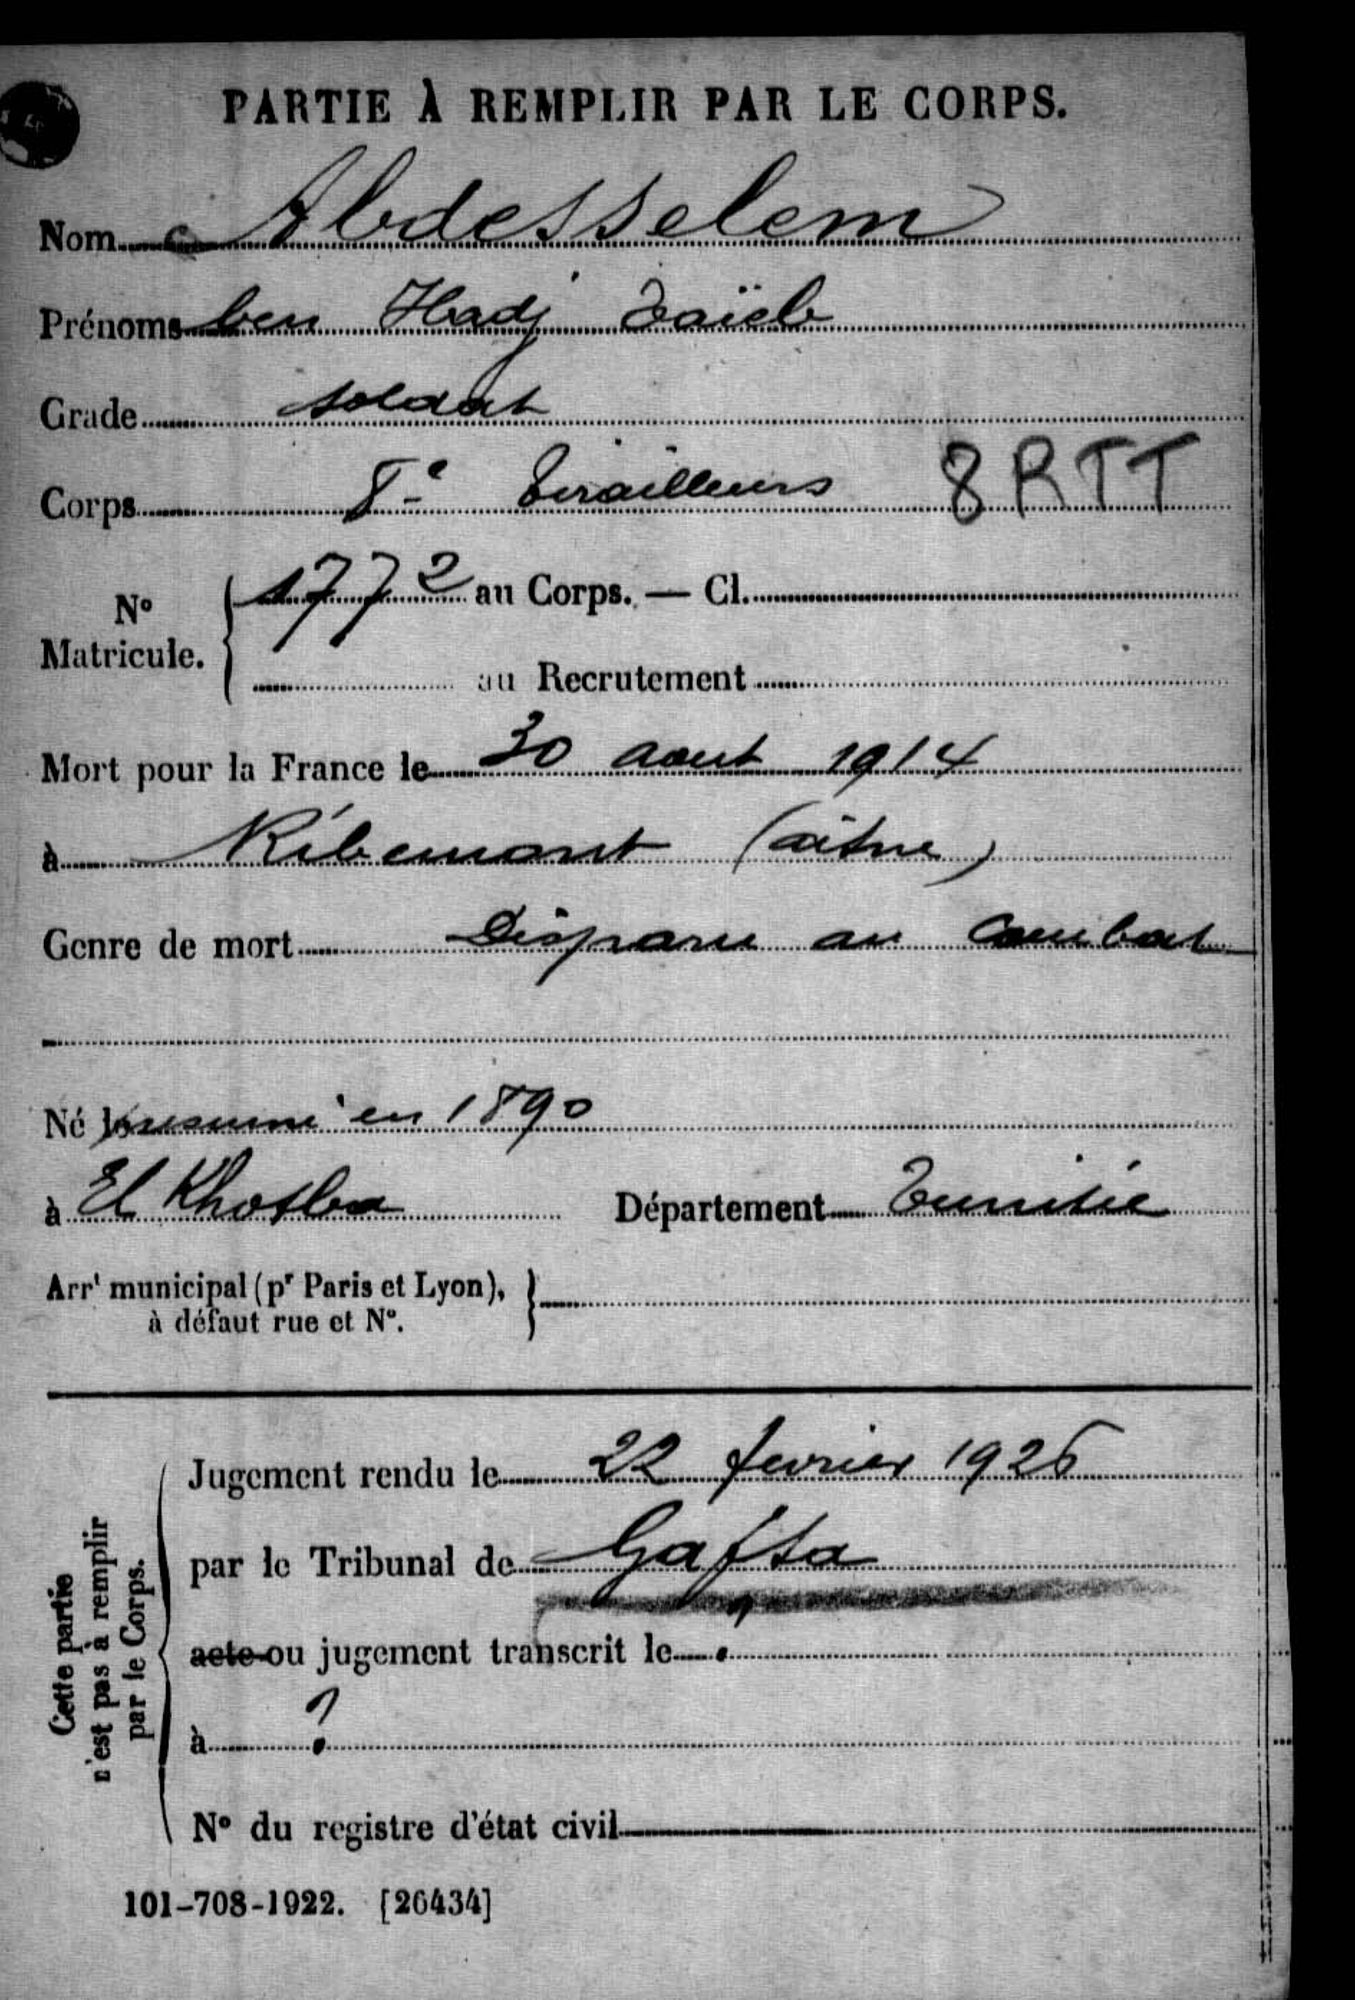 PARTIE À REMPLIR PAR LE CORPS.
Nom Abdesselem
Prénoms ben Hadj Taïeb
Grade soldat
Corps 8e Tirailleurs 8RTT
N° Matricule. 1772 au Corps. — Cl.
au Recrutement
Mort pour la France le 30 aout 1914
à Ribemont (aisne)
Genre de mort Disparu au Combat
Né présumé en 1890
à El Khotba Département Tunisie
Arrt municipal (pr Paris et Lyon),
à défaut rue et N°.
Cette partie
n'est pas à remplir
par le Corps.
Jugement rendu le 22 fevrier 1926
par le Tribunal de Gafsa
acte ou jugement transcrit le ?
à ?
N° du registre d'état civil
101-708-1922. [26434]